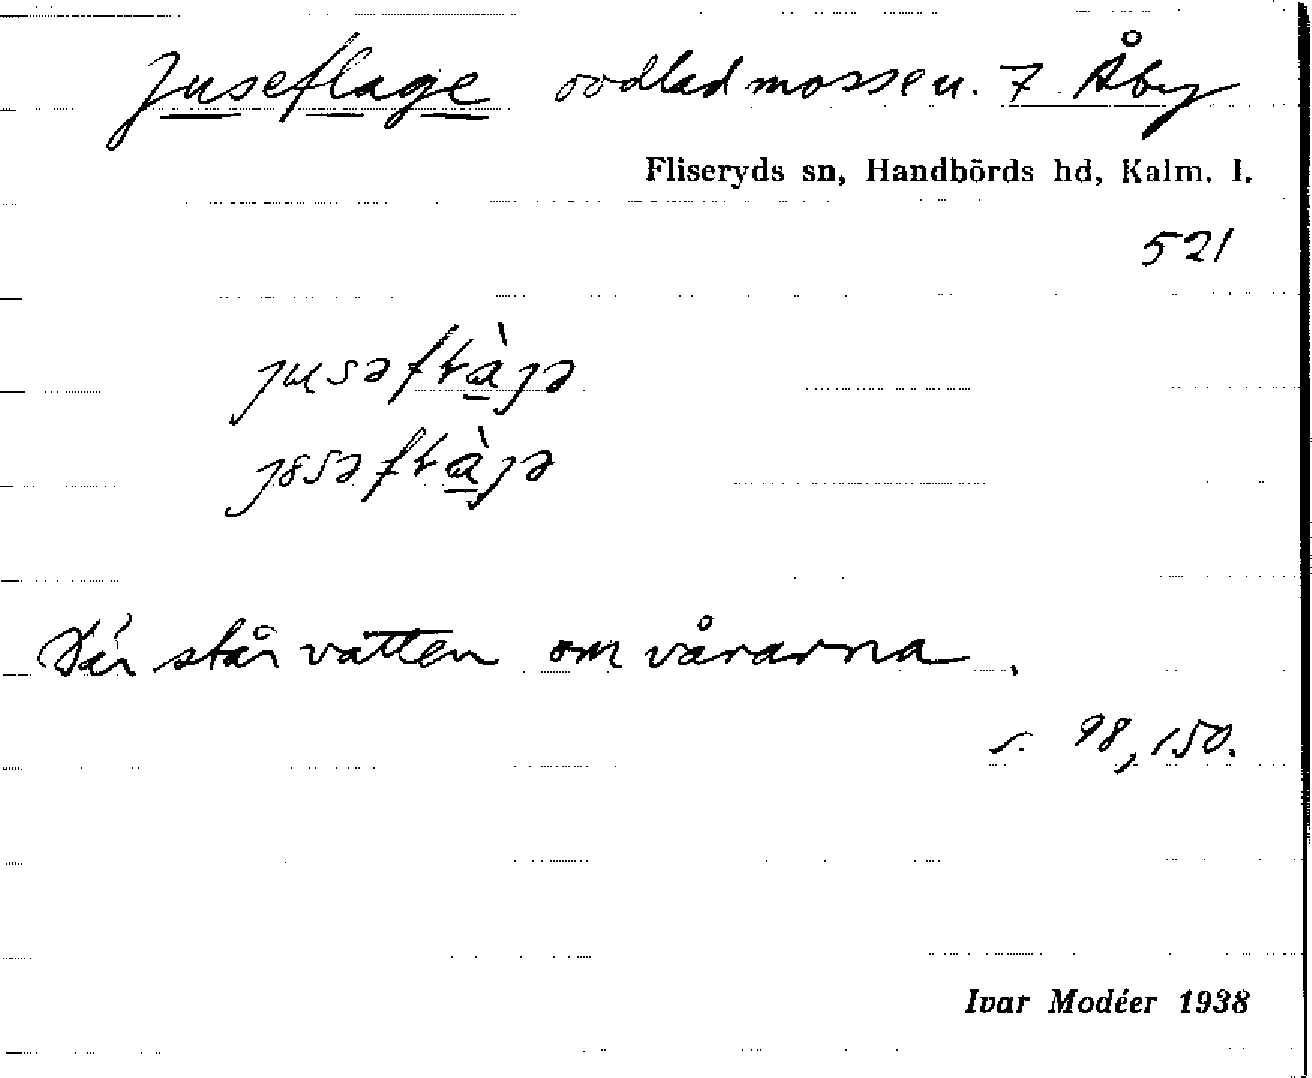 Juseflage oodlad mosse u. 7 Åby
Fliseryds sn, Handbörds hd, Kalm. l.
521
Där står vatten om vårarna.
s. 98, 150.
Ivar Modéer 1938